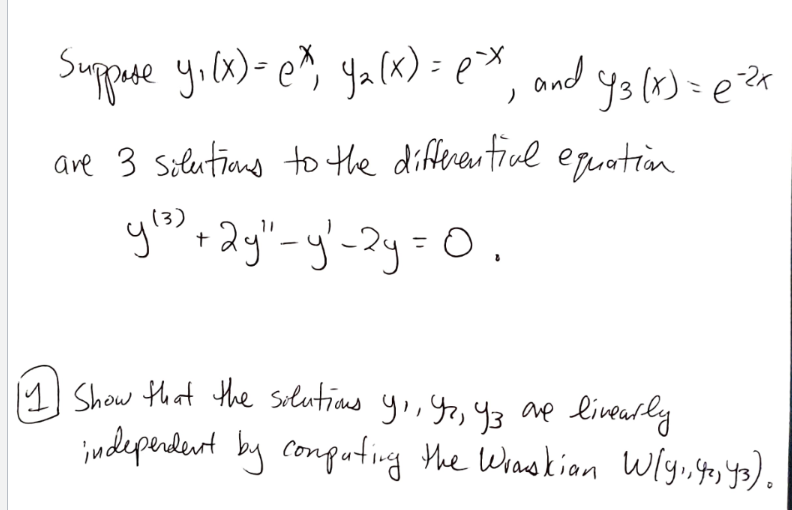 Suppose y₁(x) = eˣ, y₂(x) = e⁻ˣ, and y₃(x) = e⁻²ˣ
are 3 solutions to the differential equation
y⁽³⁾ + 2y'' - y' - 2y = 0.
1 Show that the solutions y₁, y₂, y₃ are linearly
independent by computing the Wronskian W(y₁, y₂, y₃).